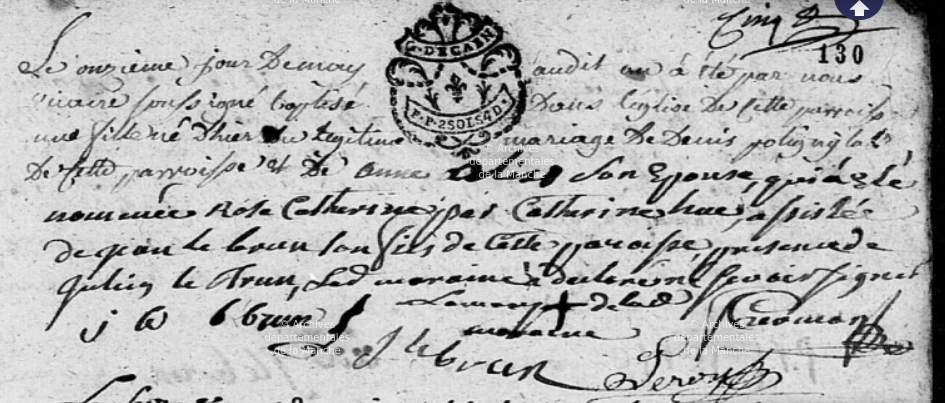 Cinq
130
G. DE CAEN
F. P. 2 SOLS 4 D.
Le onzieme jour de may audit an a été par nous
vicaire soussigné baptisé dans l'églize de cette parroiss
une fille né d'hier du legitime mariage de Denis
de cette parroisse et de anne son Epouse, qui a eté
nommée Rose Catherine par Catherine hue, assistée
de jean le brun son fils de cette paroisse, presence de
julien le Brun, led maraine a declaré ne sçavoir signer
La marque de lad
j le brun
maraine
J le brun
© Archives
départementales
de la Manche
© Archives
départementales
de la Manche
© Archives
départementales
de la Manche